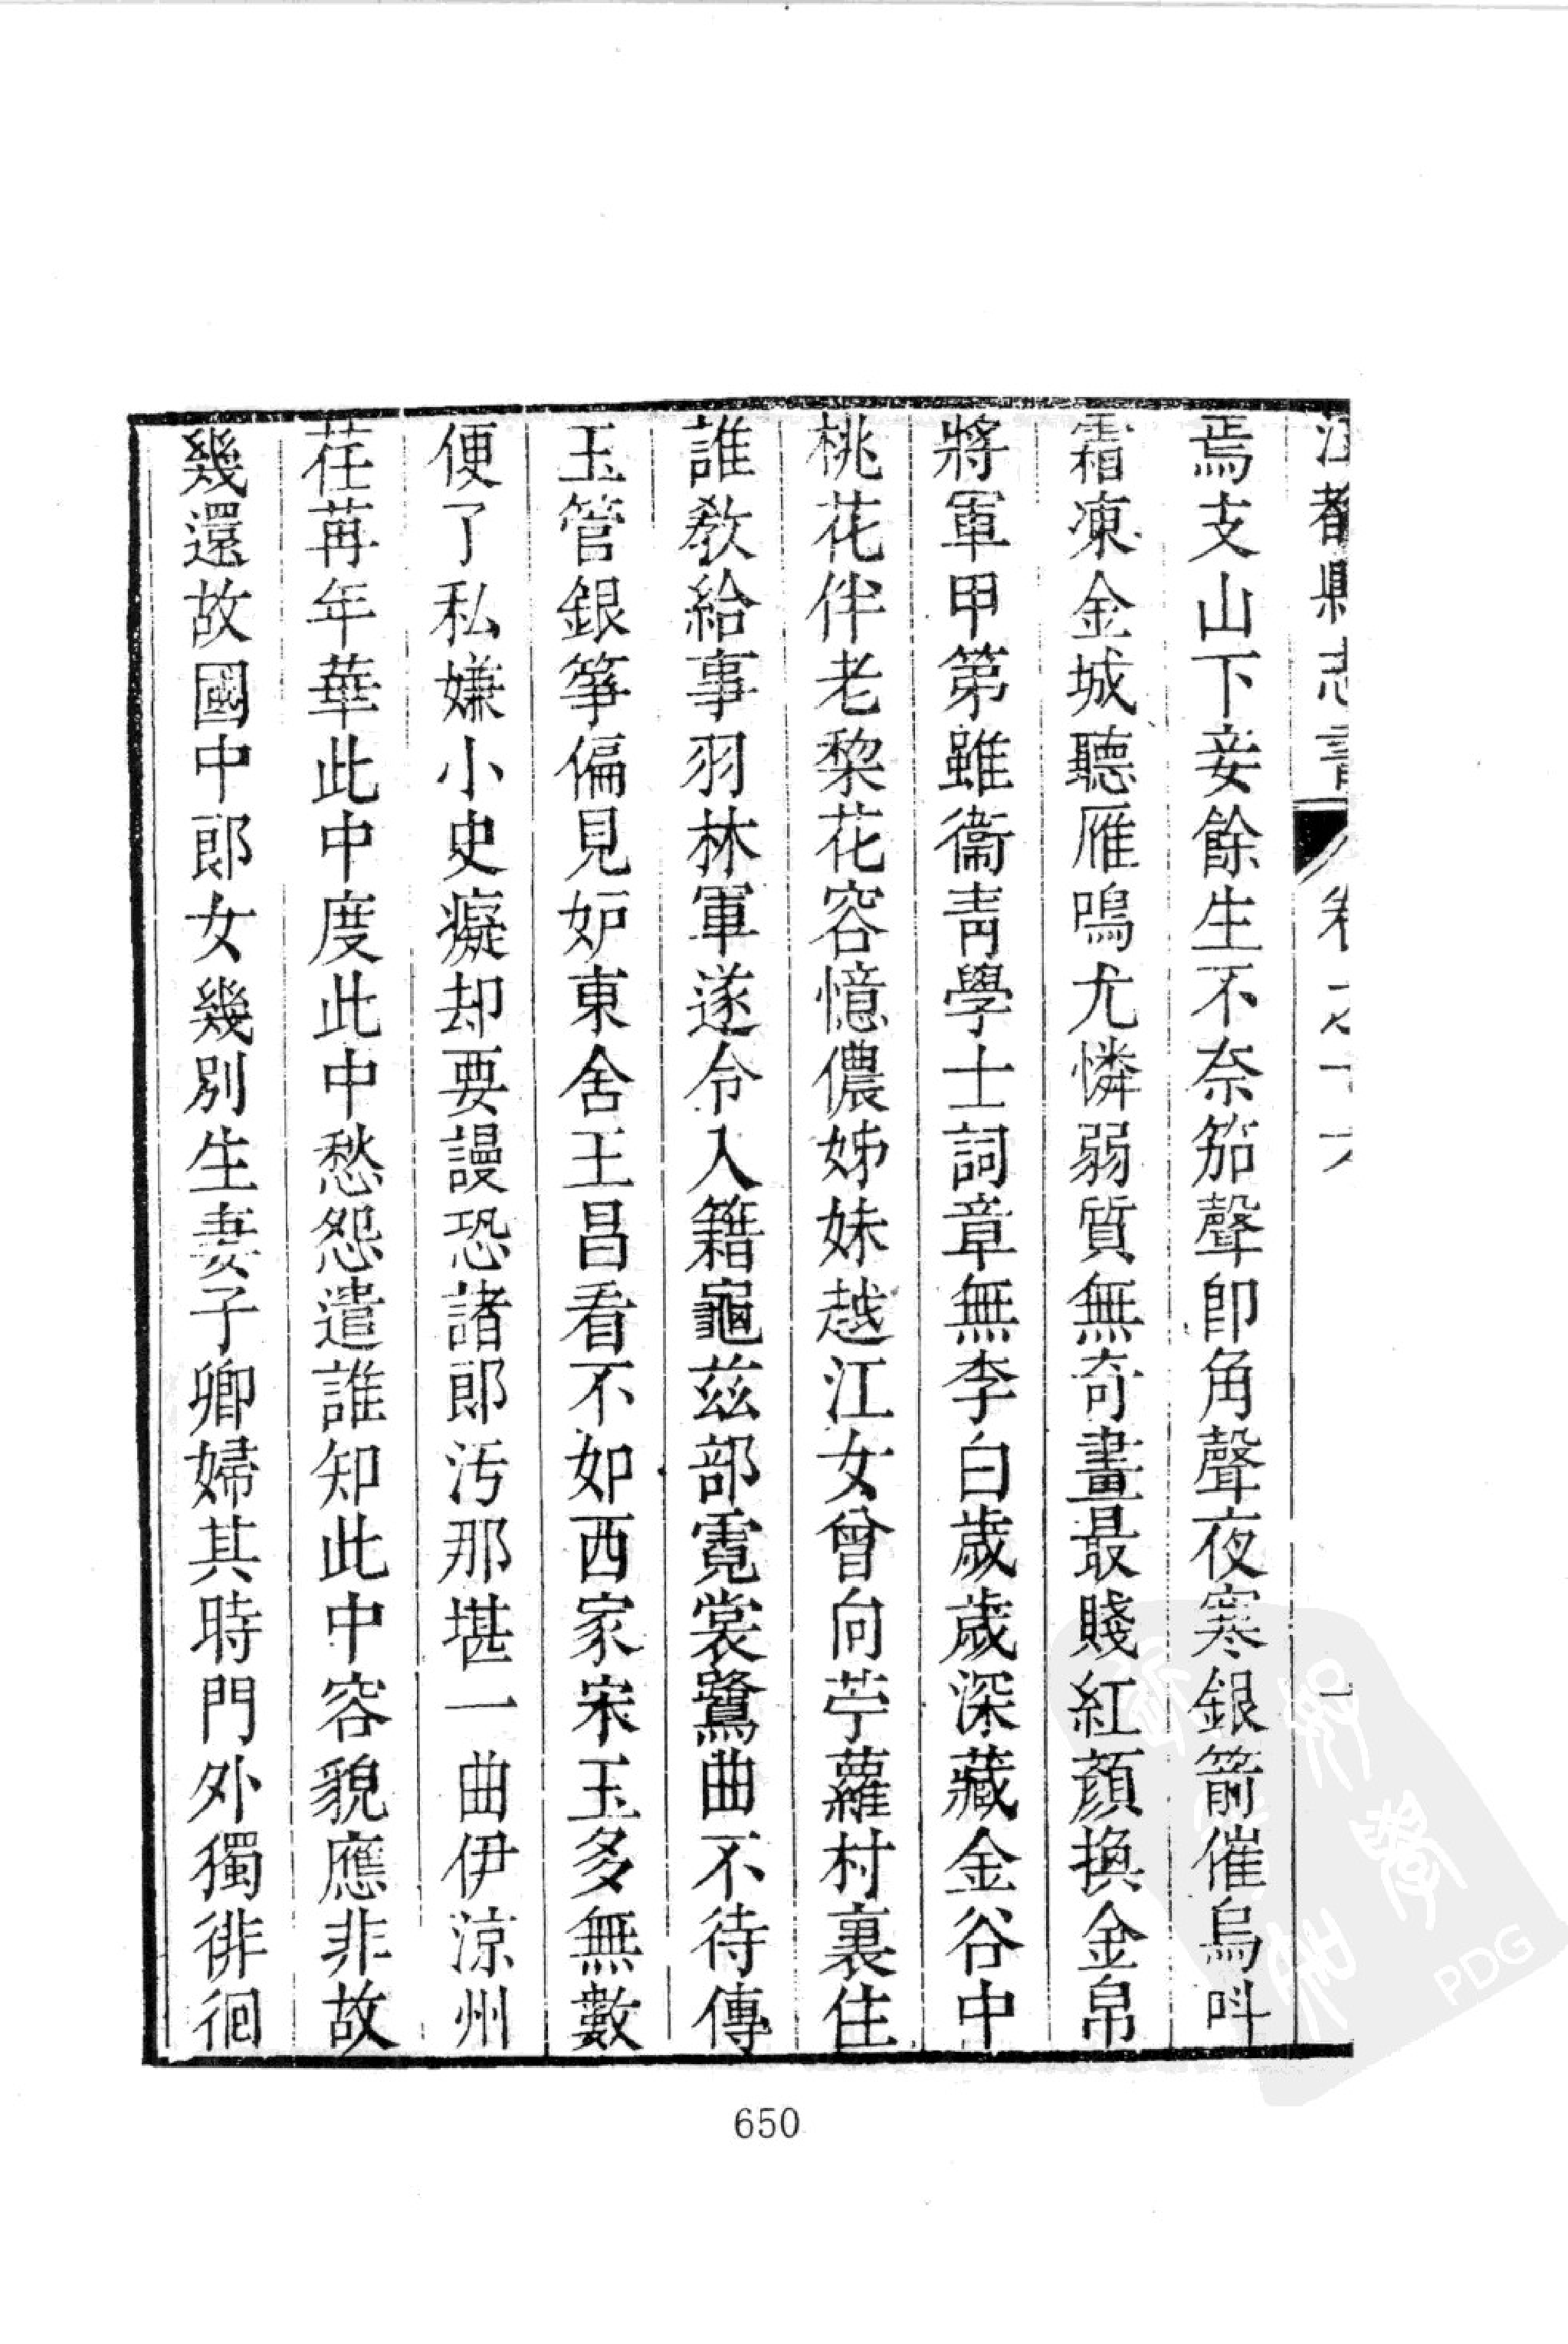 江都縣志
卷之十六
焉支山下妾餘生不奈笳聲卽角聲夜寒銀箭催烏呌
霜凍金城聽雁鳴尤憐弱質無奇畫最賤紅顏換金帛
將軍甲第雖衞靑學士詞章無李白歲歲深藏金谷中
桃花伴老黎花容憶儂姊妹越江女曾向苧蘿村裏住
誰教給事羽林軍遂令入籍龜茲部霓裳鷺曲不待傳
玉管銀箏偏見妒東舍王昌看不如西家宋玉多無數
便了私嫌小史癡却要謾恐諸郎污那堪一曲伊涼州
荏苒年華此中度此中愁怨遣誰知此中容貌應非故
幾還故國中郎女幾別生妻子卿婦其時門外獨徘徊
650
PDG